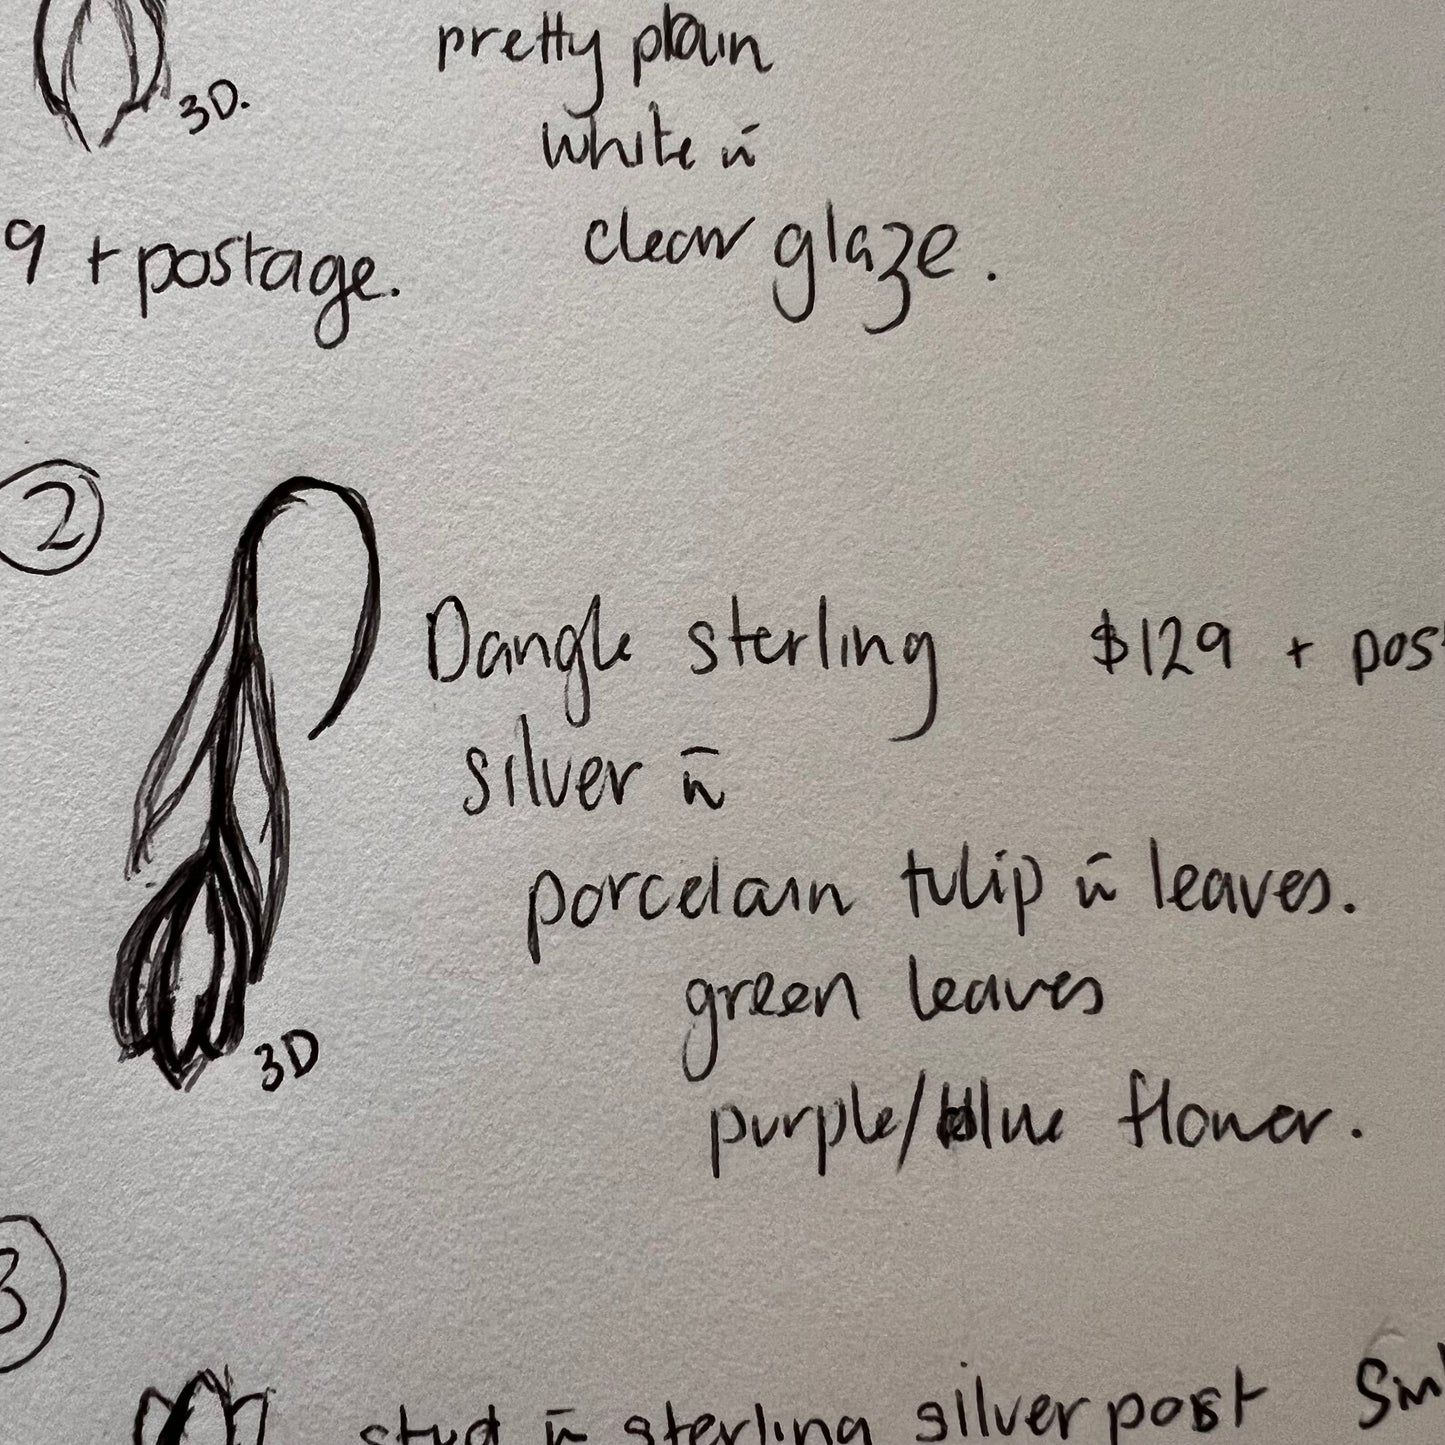 pretty plain
3D.
white w̄
9 + postage.
clear glaze.
2
Dangle sterling $129 + pos
silver w̄
porcelain tulip w̄ leaves.
green leaves
3D
purple/blue flower.
3
stud w̄ sterling silver post